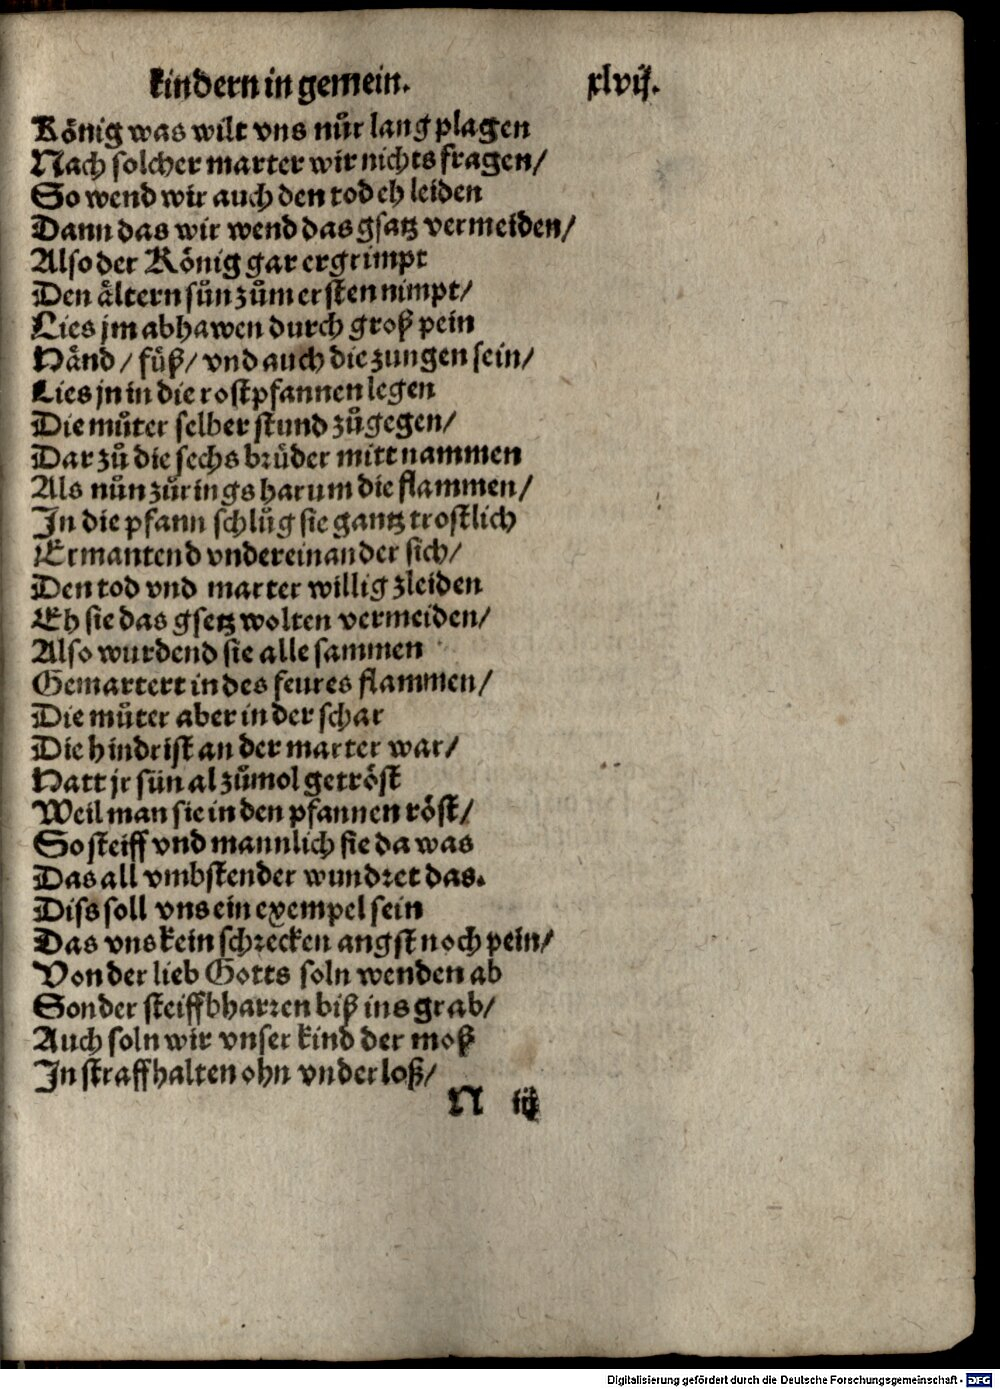 kindern in gemein. xlvij.
König was wilt vns nůr lang plagen
Nach solcher marter wir nichts fragen/
So wend wir auch den tod eh leiden
Dann das wir wend das gsatz vermeiden/
Also der König gar ergrimpt
Den ältern sůn zům ersten nimpt/
Lies jm abhawen durch groß pein
Händ/ fůß/ vnd auch die zungen sein/
Lies jn in die rostpfannen legen
Die můter selber stund zůgegen/
Dar zů die sechs brüder mitt nammen
Als nůn zůrings harum die flammen/
In die pfann schlůg sie gantz trostlich
Ermantend vndereinander sich/
Den tod vnd marter willig zleiden
Eh sie das gsetz wolten vermeiden/
Also wurdend sie alle sammen
Gemartert in des feures flammen/
Die můter aber in der schar
Die hindrist an der marter war/
Hatt jr sün al zůmol getröst
Weil man sie in den pfannen röst/
So steiff vnd mannlich sie da was
Das all vmbstender wundret das.
Diss soll vns ein exempel sein
Das vns kein schrecken angst noch pein/
Von der lieb Gotts soln wenden ab
Sonder steiff bharren biß ins grab/
Auch soln wir vnser kind der moß
In straff halten ohn vnderloß/
N iij
Digitalisierung gefördert durch die Deutsche Forschungsgemeinschaft - DFG